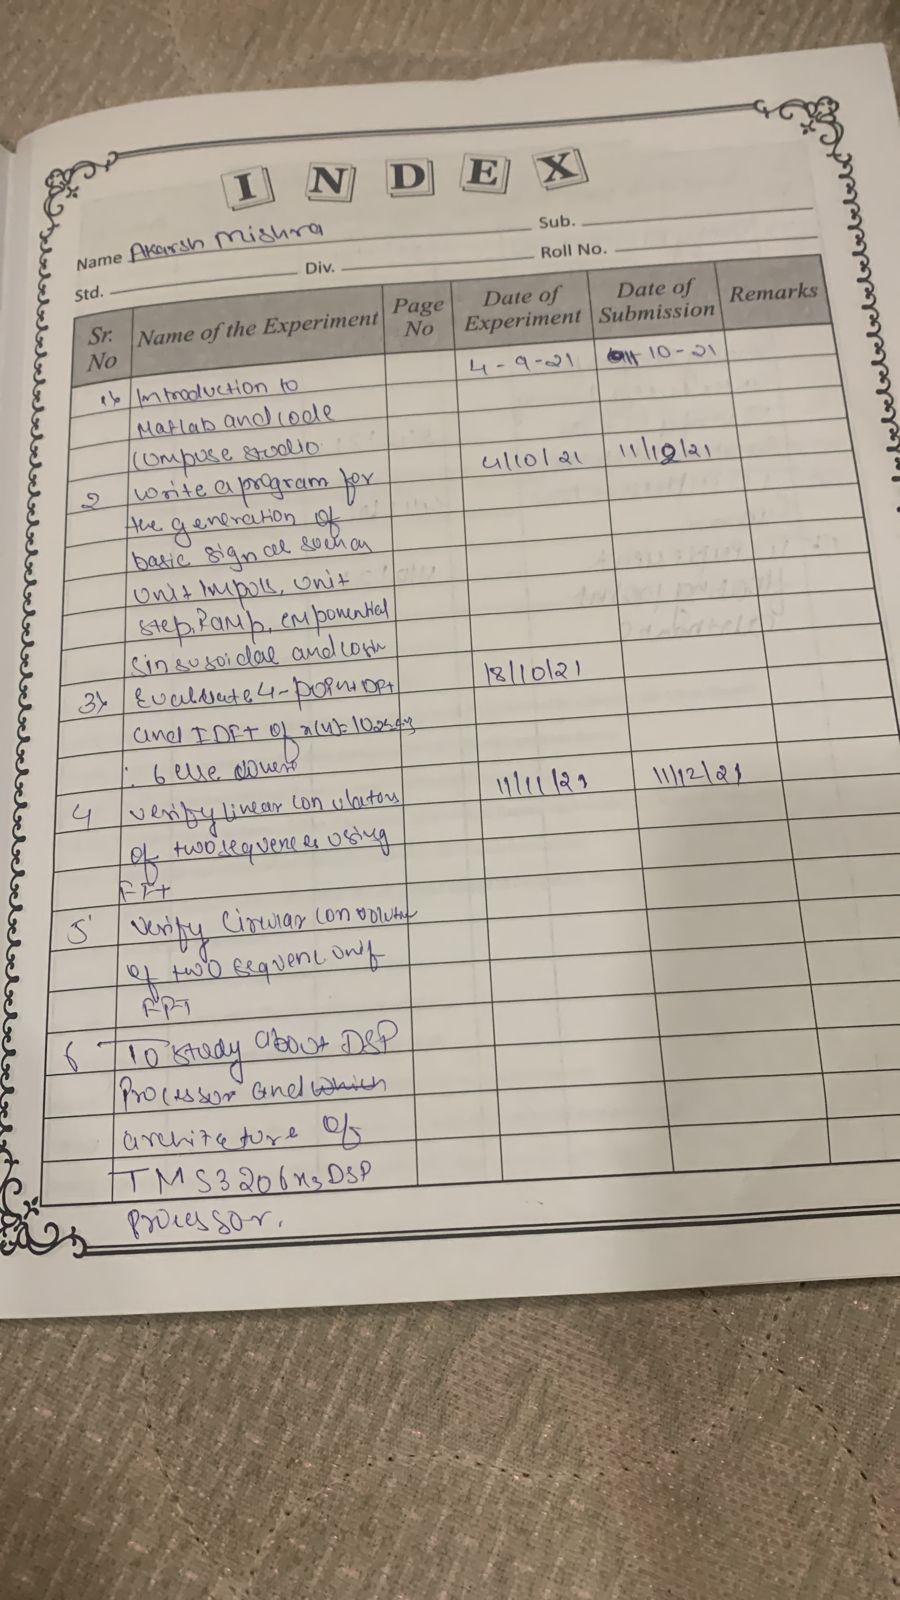 INDEX
Name Akarsh Mishra Sub.
Std. Div. Roll No.
Sr. No Name of the Experiment Page No Date of Experiment Date of Submission Remarks
1) Introduction to 4-9-21 10-21
Matlab and code
compuse studio
2 write a program for 4/10/21 11/10/21
the generation of
basic signal such as
unit impuls, unit
step, Ramp, exponential
sinsusoidal and cosin
3) Evaluate 4-point DFT 18/10/21
and IDFT of x(n)=
6 else
4 verify linear con 11/11/21 11/12/21
of two sequences using
FFT
5 verify Circular
of two sequenc
FFT
6 To study about DSP
Processor and which
architecture of
TMS3206x3 DSP
processor.